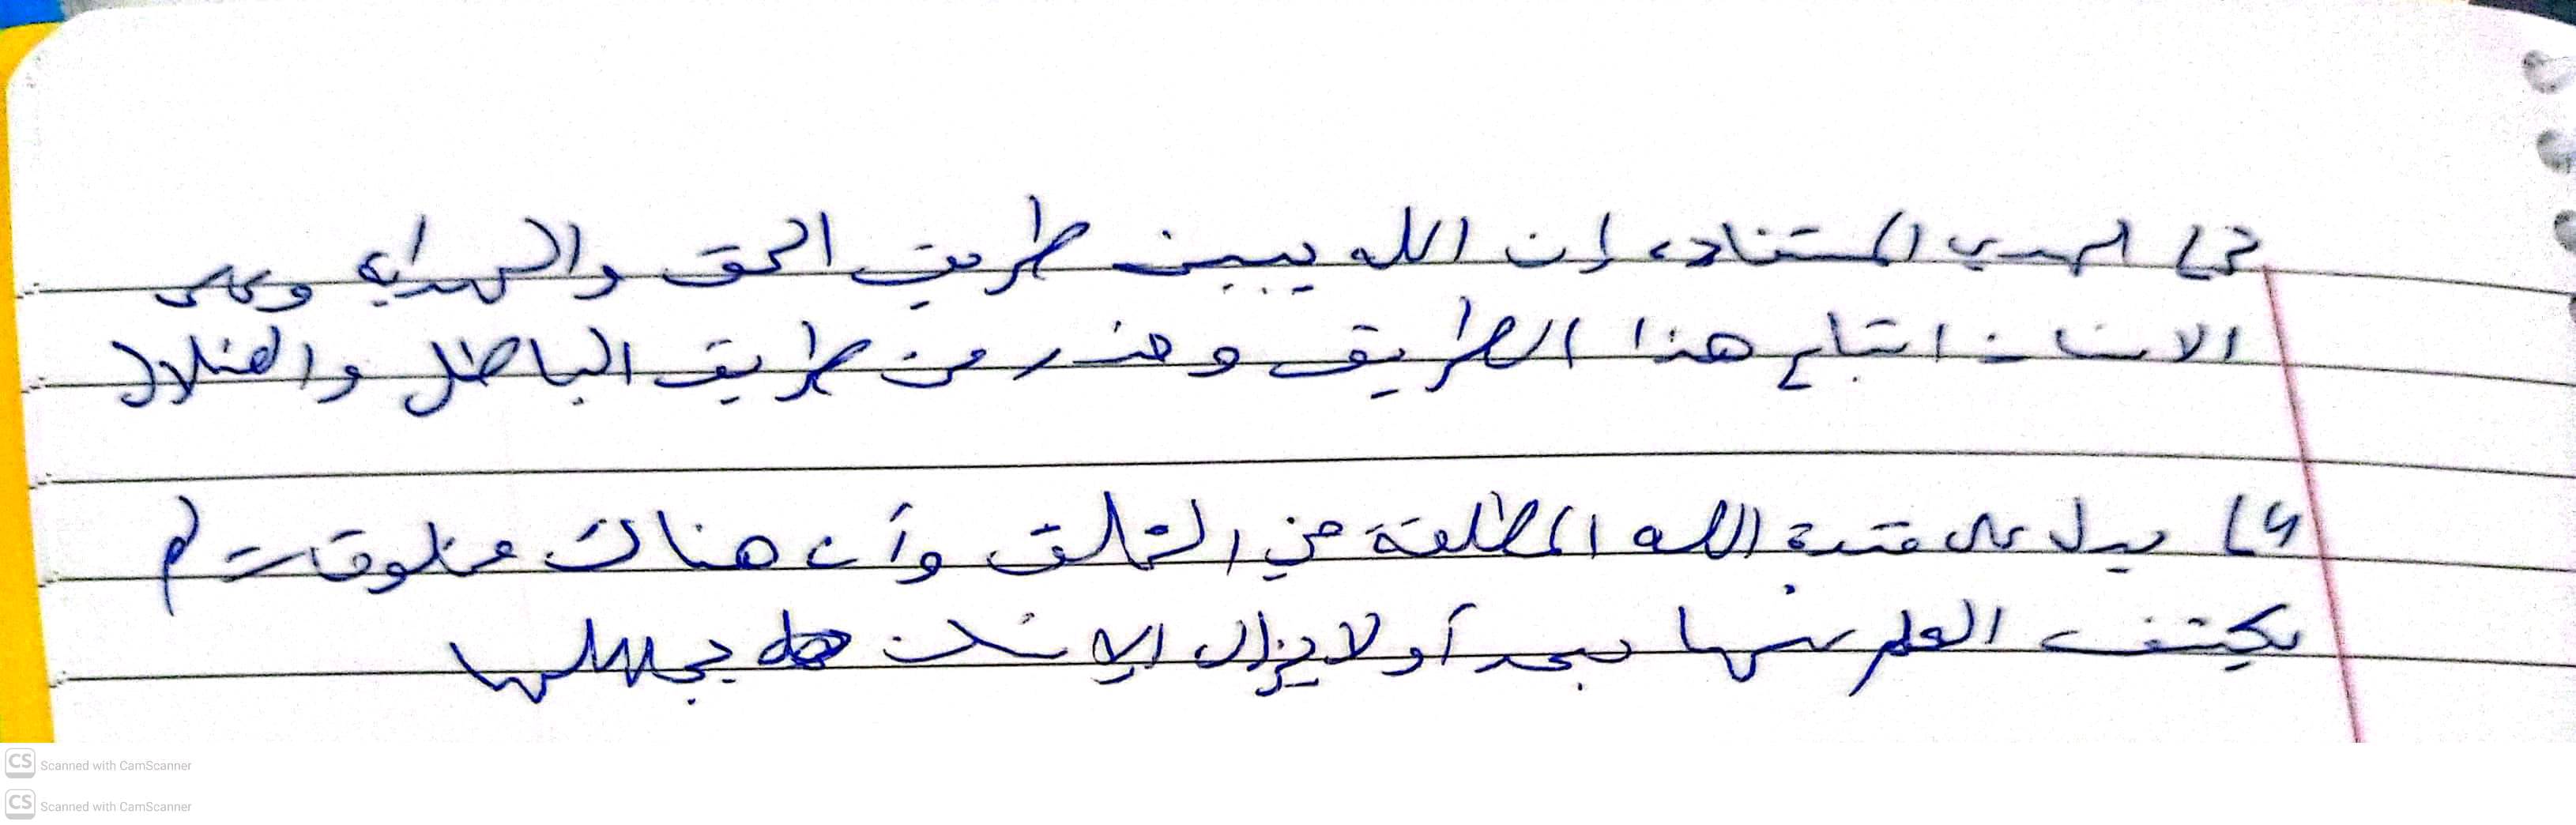 ج) الهدي المستفاد، إن الله يبين طريق الحق والهداية وعلى
الانسان اتباع هذا الطريق وحذر من طريق الباطل والضلال
د) يدل على قدرة الله المطلقة في الخلق وأن هناك مخلوقات لم
يكتشف العلم عنها بعد أو لا يزال الإنسان يجهلها
CS Scanned with CamScanner
CS Scanned with CamScanner